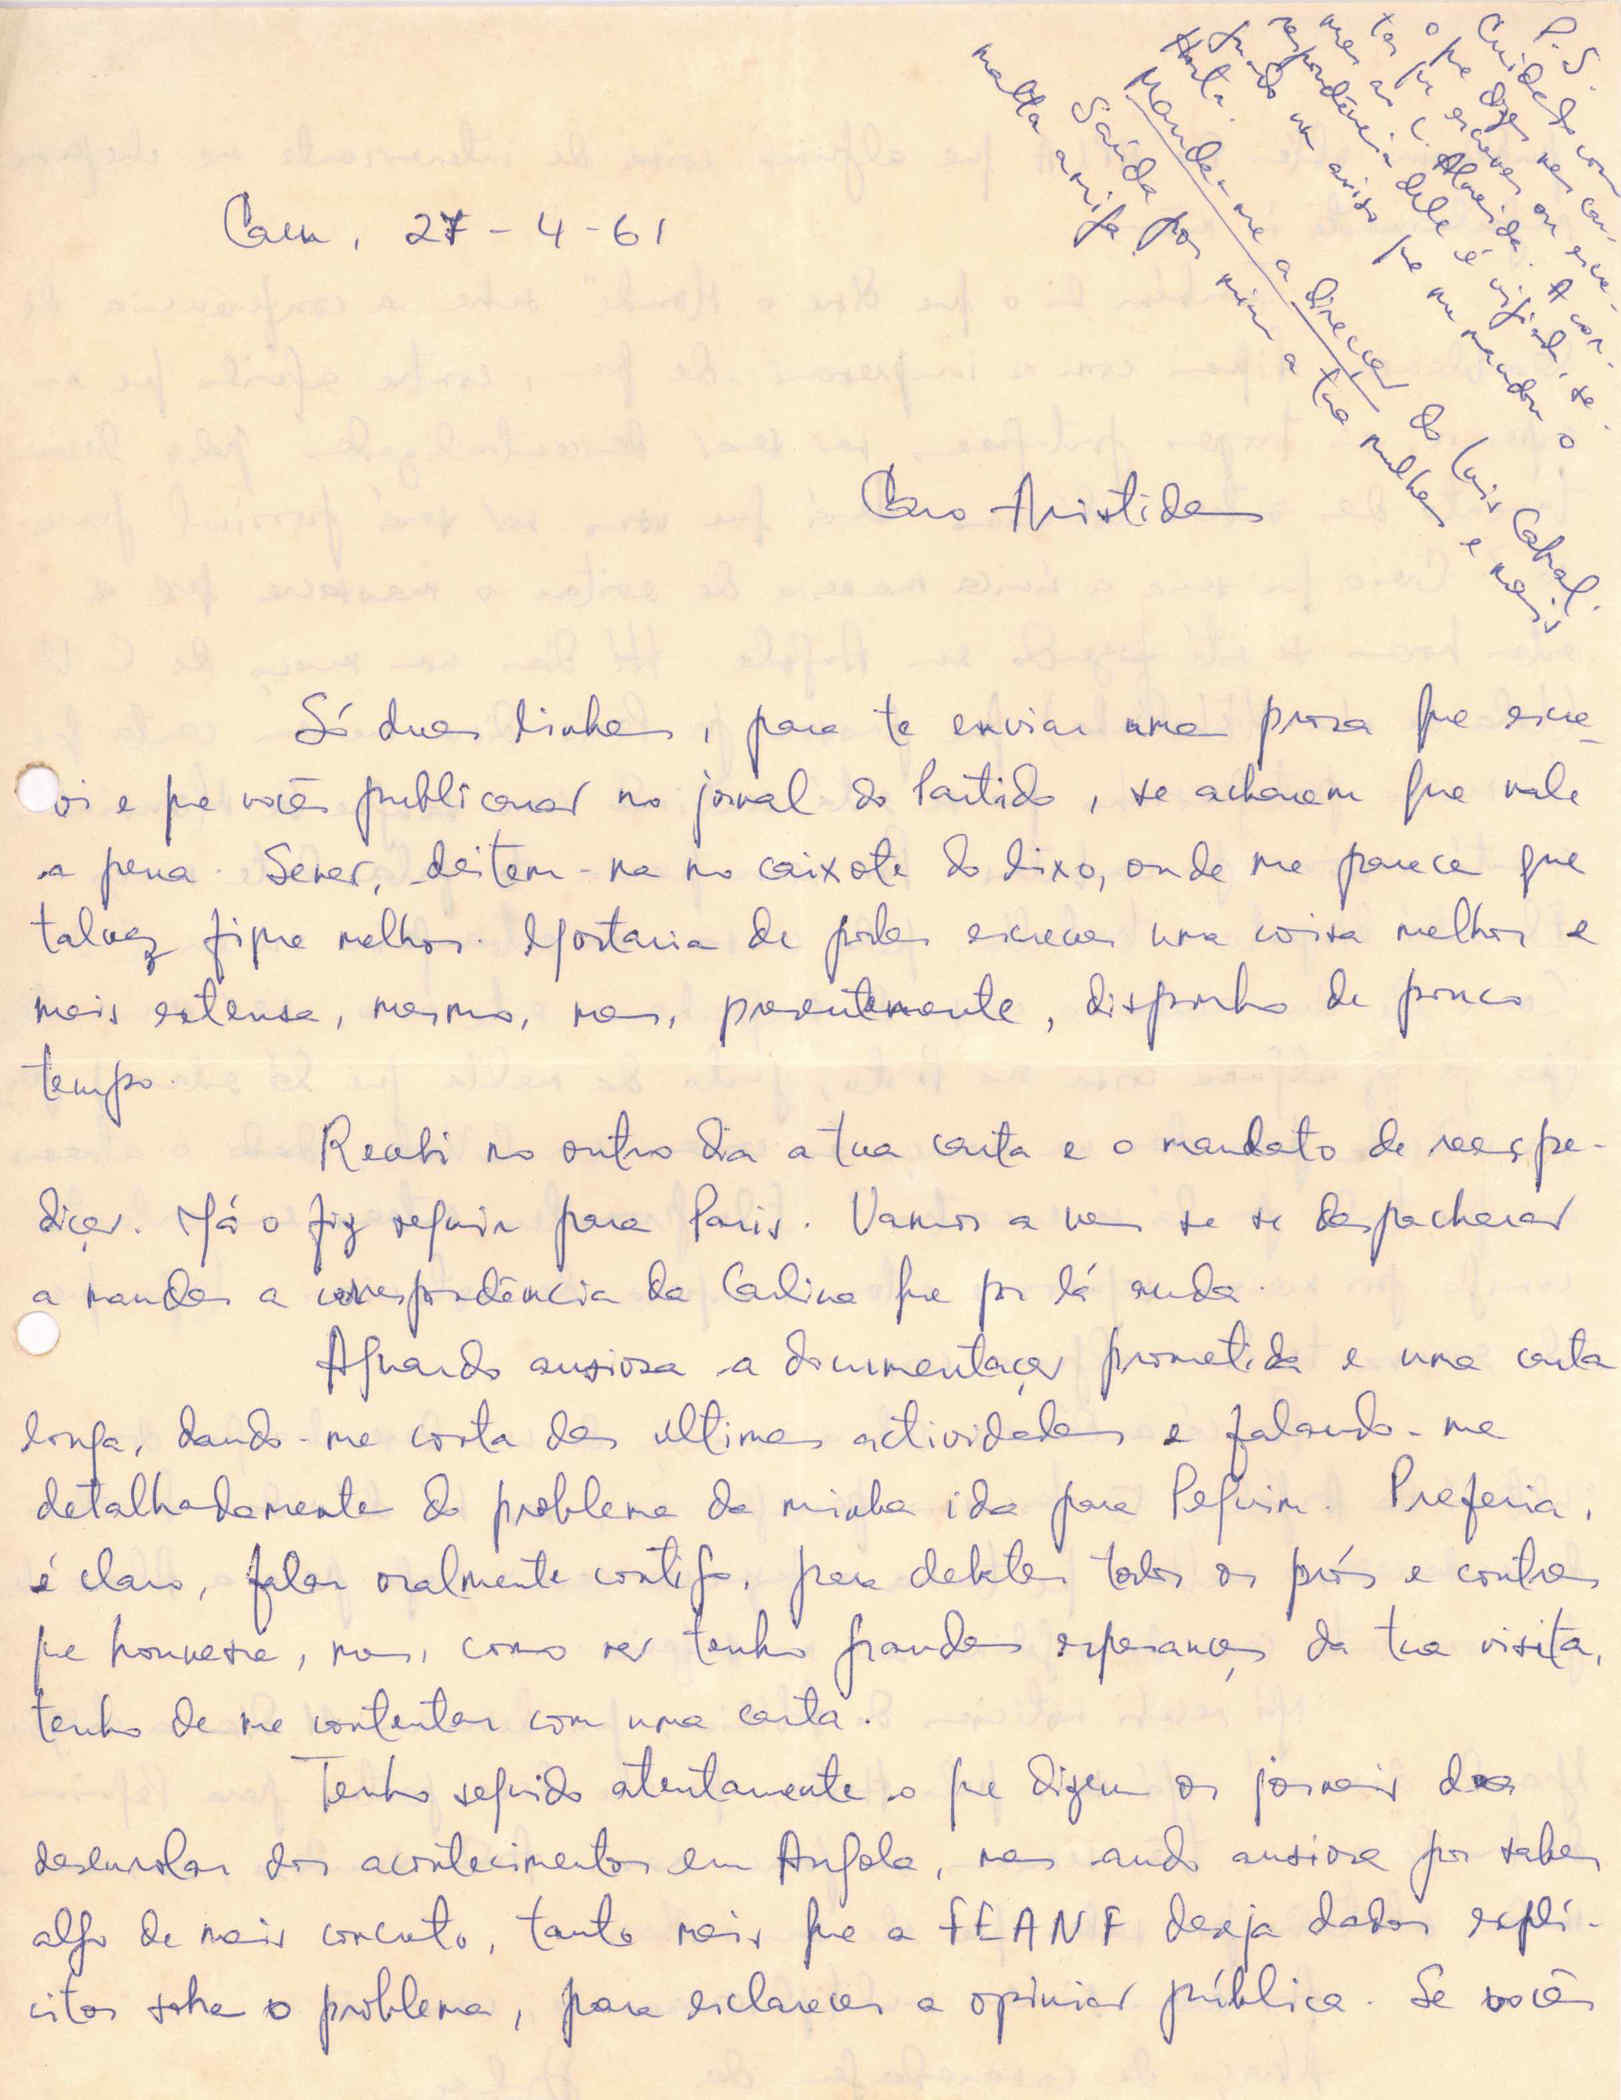 Caen, 27-4-61
Caro Aristides
Só duas linhas, para te enviar uma prosa que escre-
vi e que vocês publicarão no jornal do Partido, se acharem que vale
a pena. Senão, deitem-na no caixote do lixo, onde me parece que
talvez fique melhor. Gostaria de poder escrever uma coisa melhor e
mais extensa, mesmo, mas, presentemente, disponho de pouco
tempo.
Recebi no outro dia a tua carta e o mandato de reexpe-
dição. Já o fiz seguir para Paris. Vamos a ver se se despacharão
a mandar a correspondência da Carlina que por lá anda.
Aguardo ansiosa a documentação prometida e uma carta
longa, dando-me conta das ultimas actividades e falando-me
detalhadamente do problema da minha ida para Pequim. Preferia,
é claro, falar oralmente contigo, para debater todos os prós e contras
que houvesse, mas, como não tenho grandes esperanças da tua visita,
tenho de me contentar com uma carta.
Tenho seguido atentamente o que dizem os jornais do
desenrolar dos acontecimentos em Angola, mas ando ansiosa por saber
algo de mais concreto, tanto mais que a FEANF deseja dados explí-
citos sobre o problema, para esclarecer a opinião pública. Se vocês
P.S.
Cuidado com
o que dizes nas car-
tas que escreves ou escre-
ves ao C. Almeida. A cor-
respondência dele é vigiada, se-
gundo um aviso que me mandou o
Horta.
Manda-me a direcção do Luis Cabral.
Saúda por mim a tua mulher e mais
malta amiga.